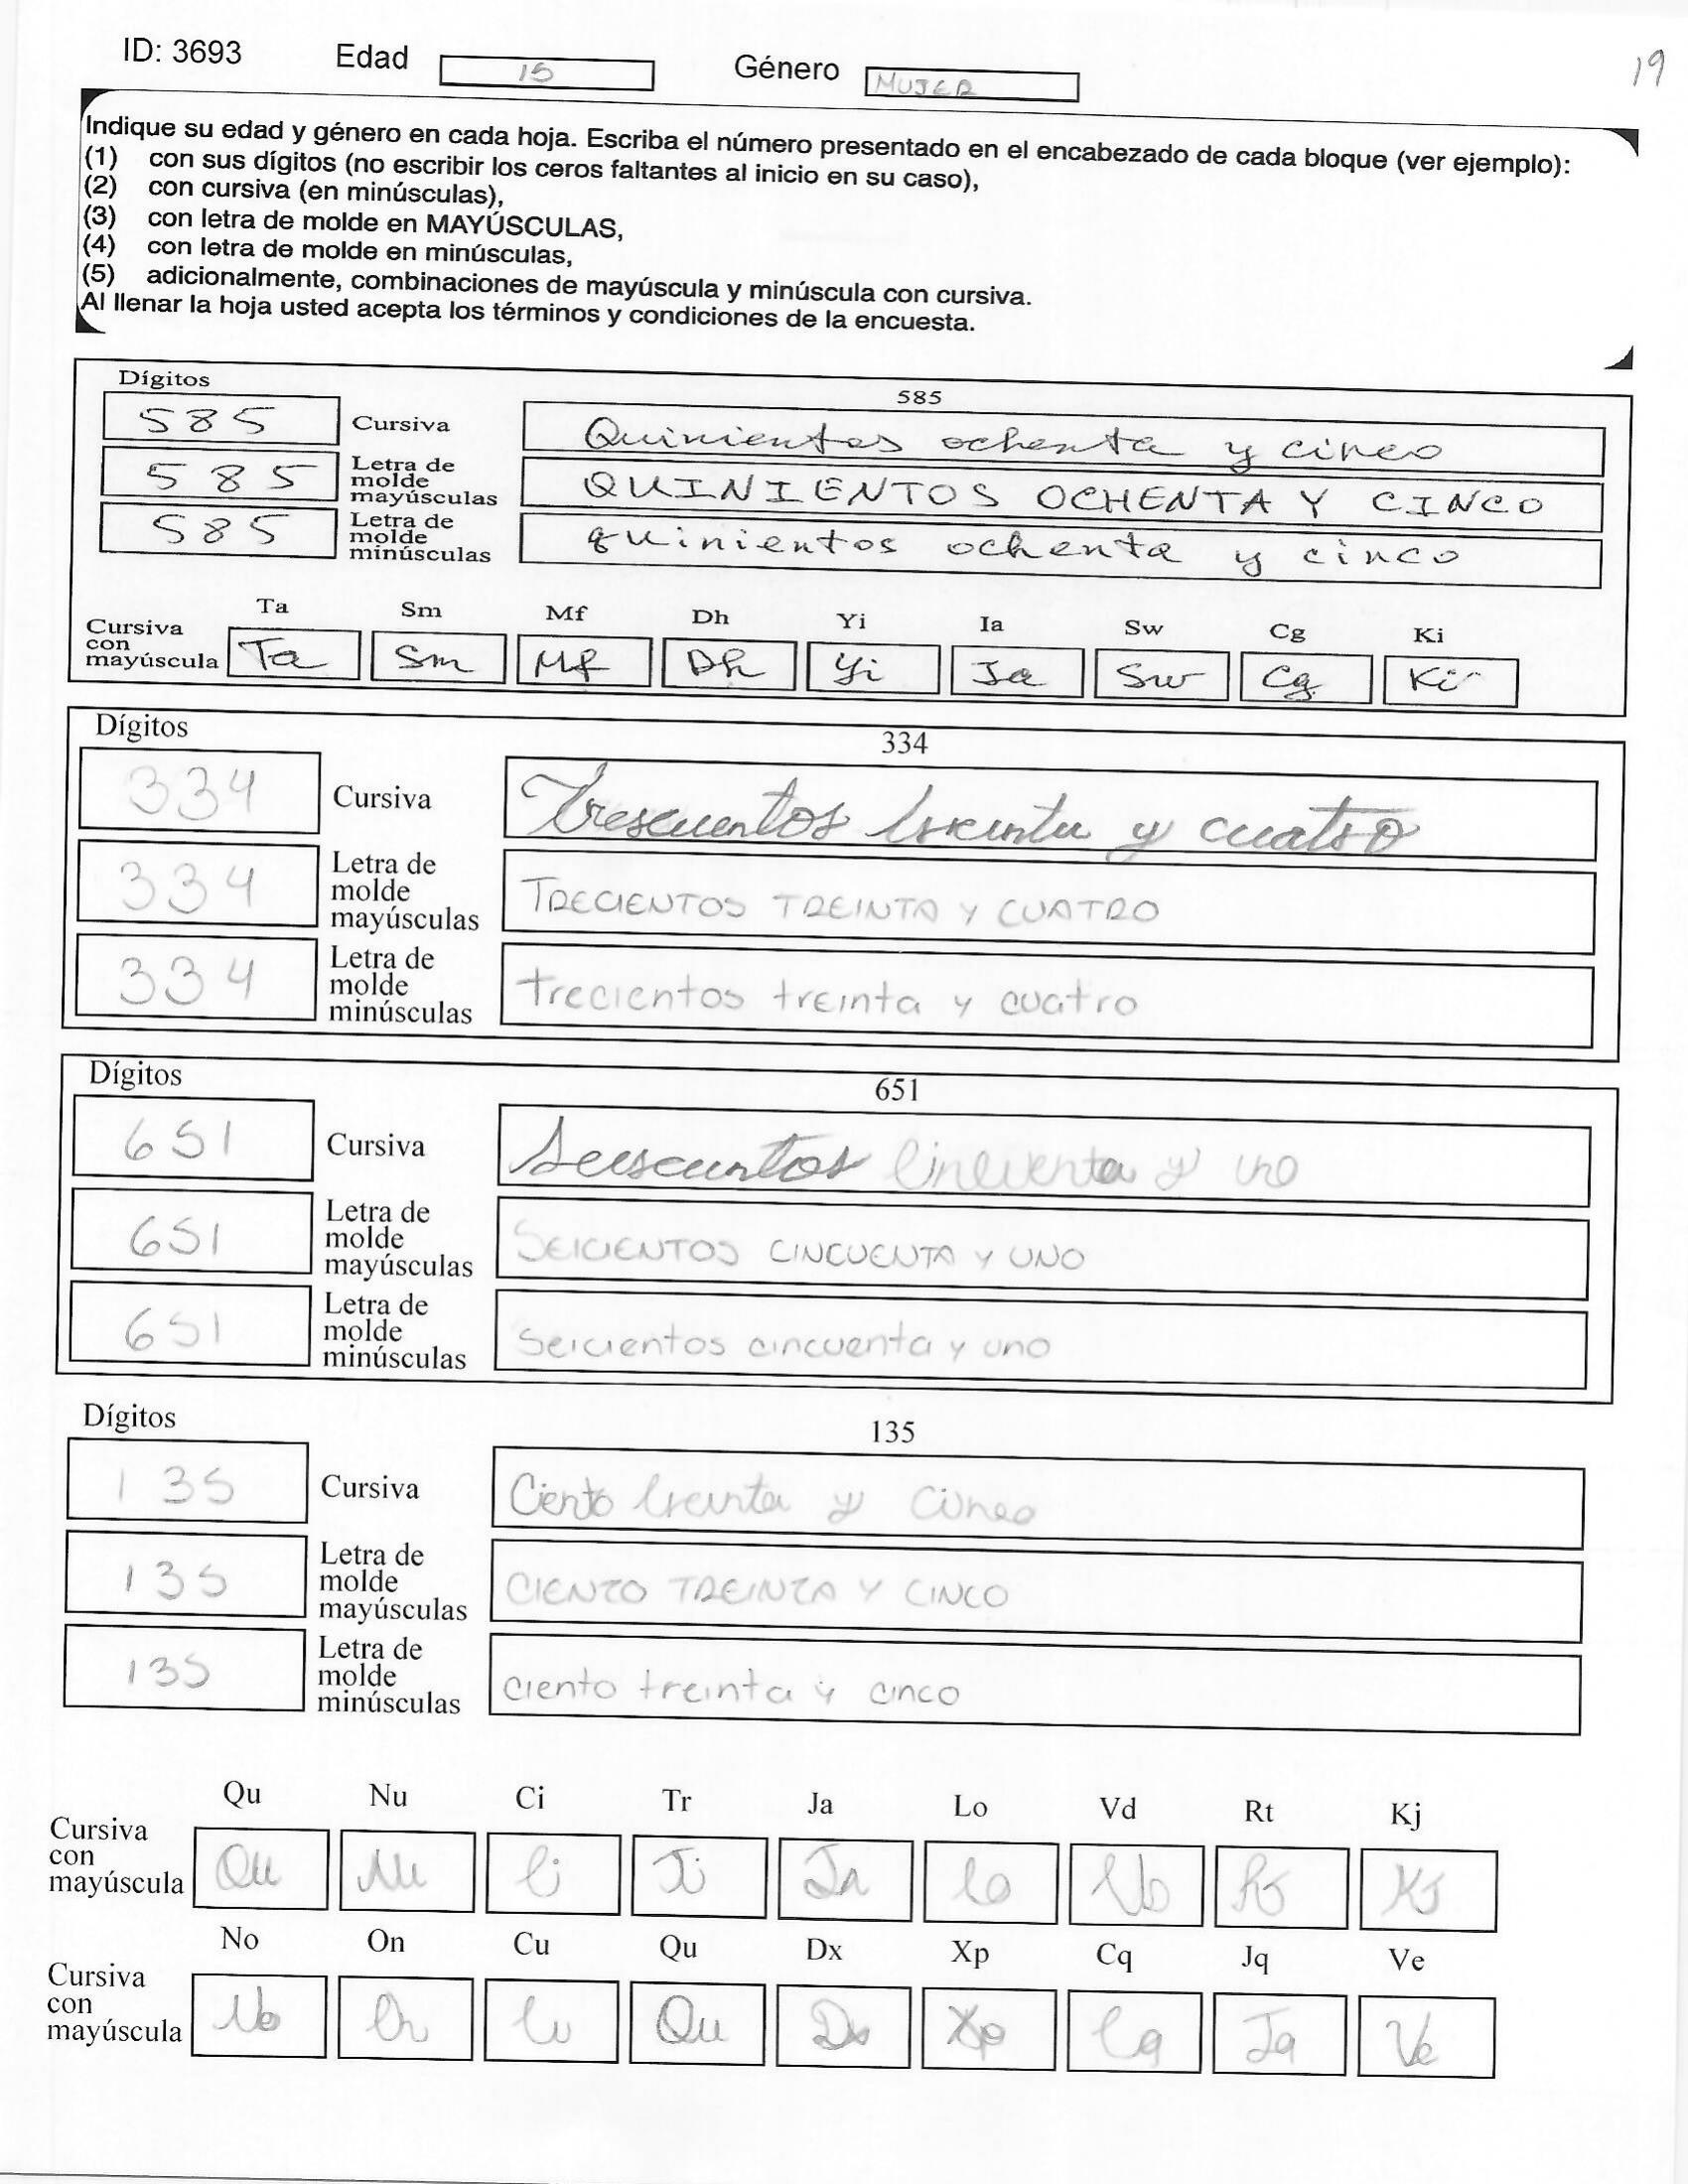 ID: 3693 Edad 15 Género MUJER 19
Indique su edad y género en cada hoja. Escriba el número presentado en el encabezado de cada bloque (ver ejemplo):
(1) con sus dígitos (no escribir los ceros faltantes al inicio en su caso),
(2) con cursiva (en minúsculas),
(3) con letra de molde en MAYÚSCULAS,
(4) con letra de molde en minúsculas,
(5) adicionalmente, combinaciones de mayúscula y minúscula con cursiva.
Al llenar la hoja usted acepta los términos y condiciones de la encuesta.
Dígitos 585
585 Cursiva Quinientos ochenta y cinco
585 Letra de molde mayúsculas QUINIENTOS OCHENTA Y CINCO
585 Letra de molde minúsculas quinientos ochenta y cinco
Ta Sm Mf Dh Yi Ia Sw Cg Ki
Cursiva con mayúscula Ta Sm Mf Dh Yi Ia Sw Cg Ki
Dígitos 334
334 Cursiva Trescientos treinta y cuatro
334 Letra de molde mayúsculas TRECIENTOS TREINTA Y CUATRO
334 Letra de molde minúsculas trecientos treinta y cuatro
Dígitos 651
651 Cursiva Seiscientos cincuenta y uno
651 Letra de molde mayúsculas SEICIENTOS CINCUENTA Y UNO
651 Letra de molde minúsculas seicientos cincuenta y uno
Dígitos 135
135 Cursiva Ciento treinta y cinco
135 Letra de molde mayúsculas CIENTO TREINTA Y CINCO
135 Letra de molde minúsculas ciento treinta y cinco
Qu Nu Ci Tr Ja Lo Vd Rt Kj
Cursiva con mayúscula Qu Nu Ci Ti Ja Lo Kj
No On Cu Qu Dx Xp Cq Jq Ve
Cursiva con mayúscula No On Cu Qu Dx Xp Cq Jq Ve